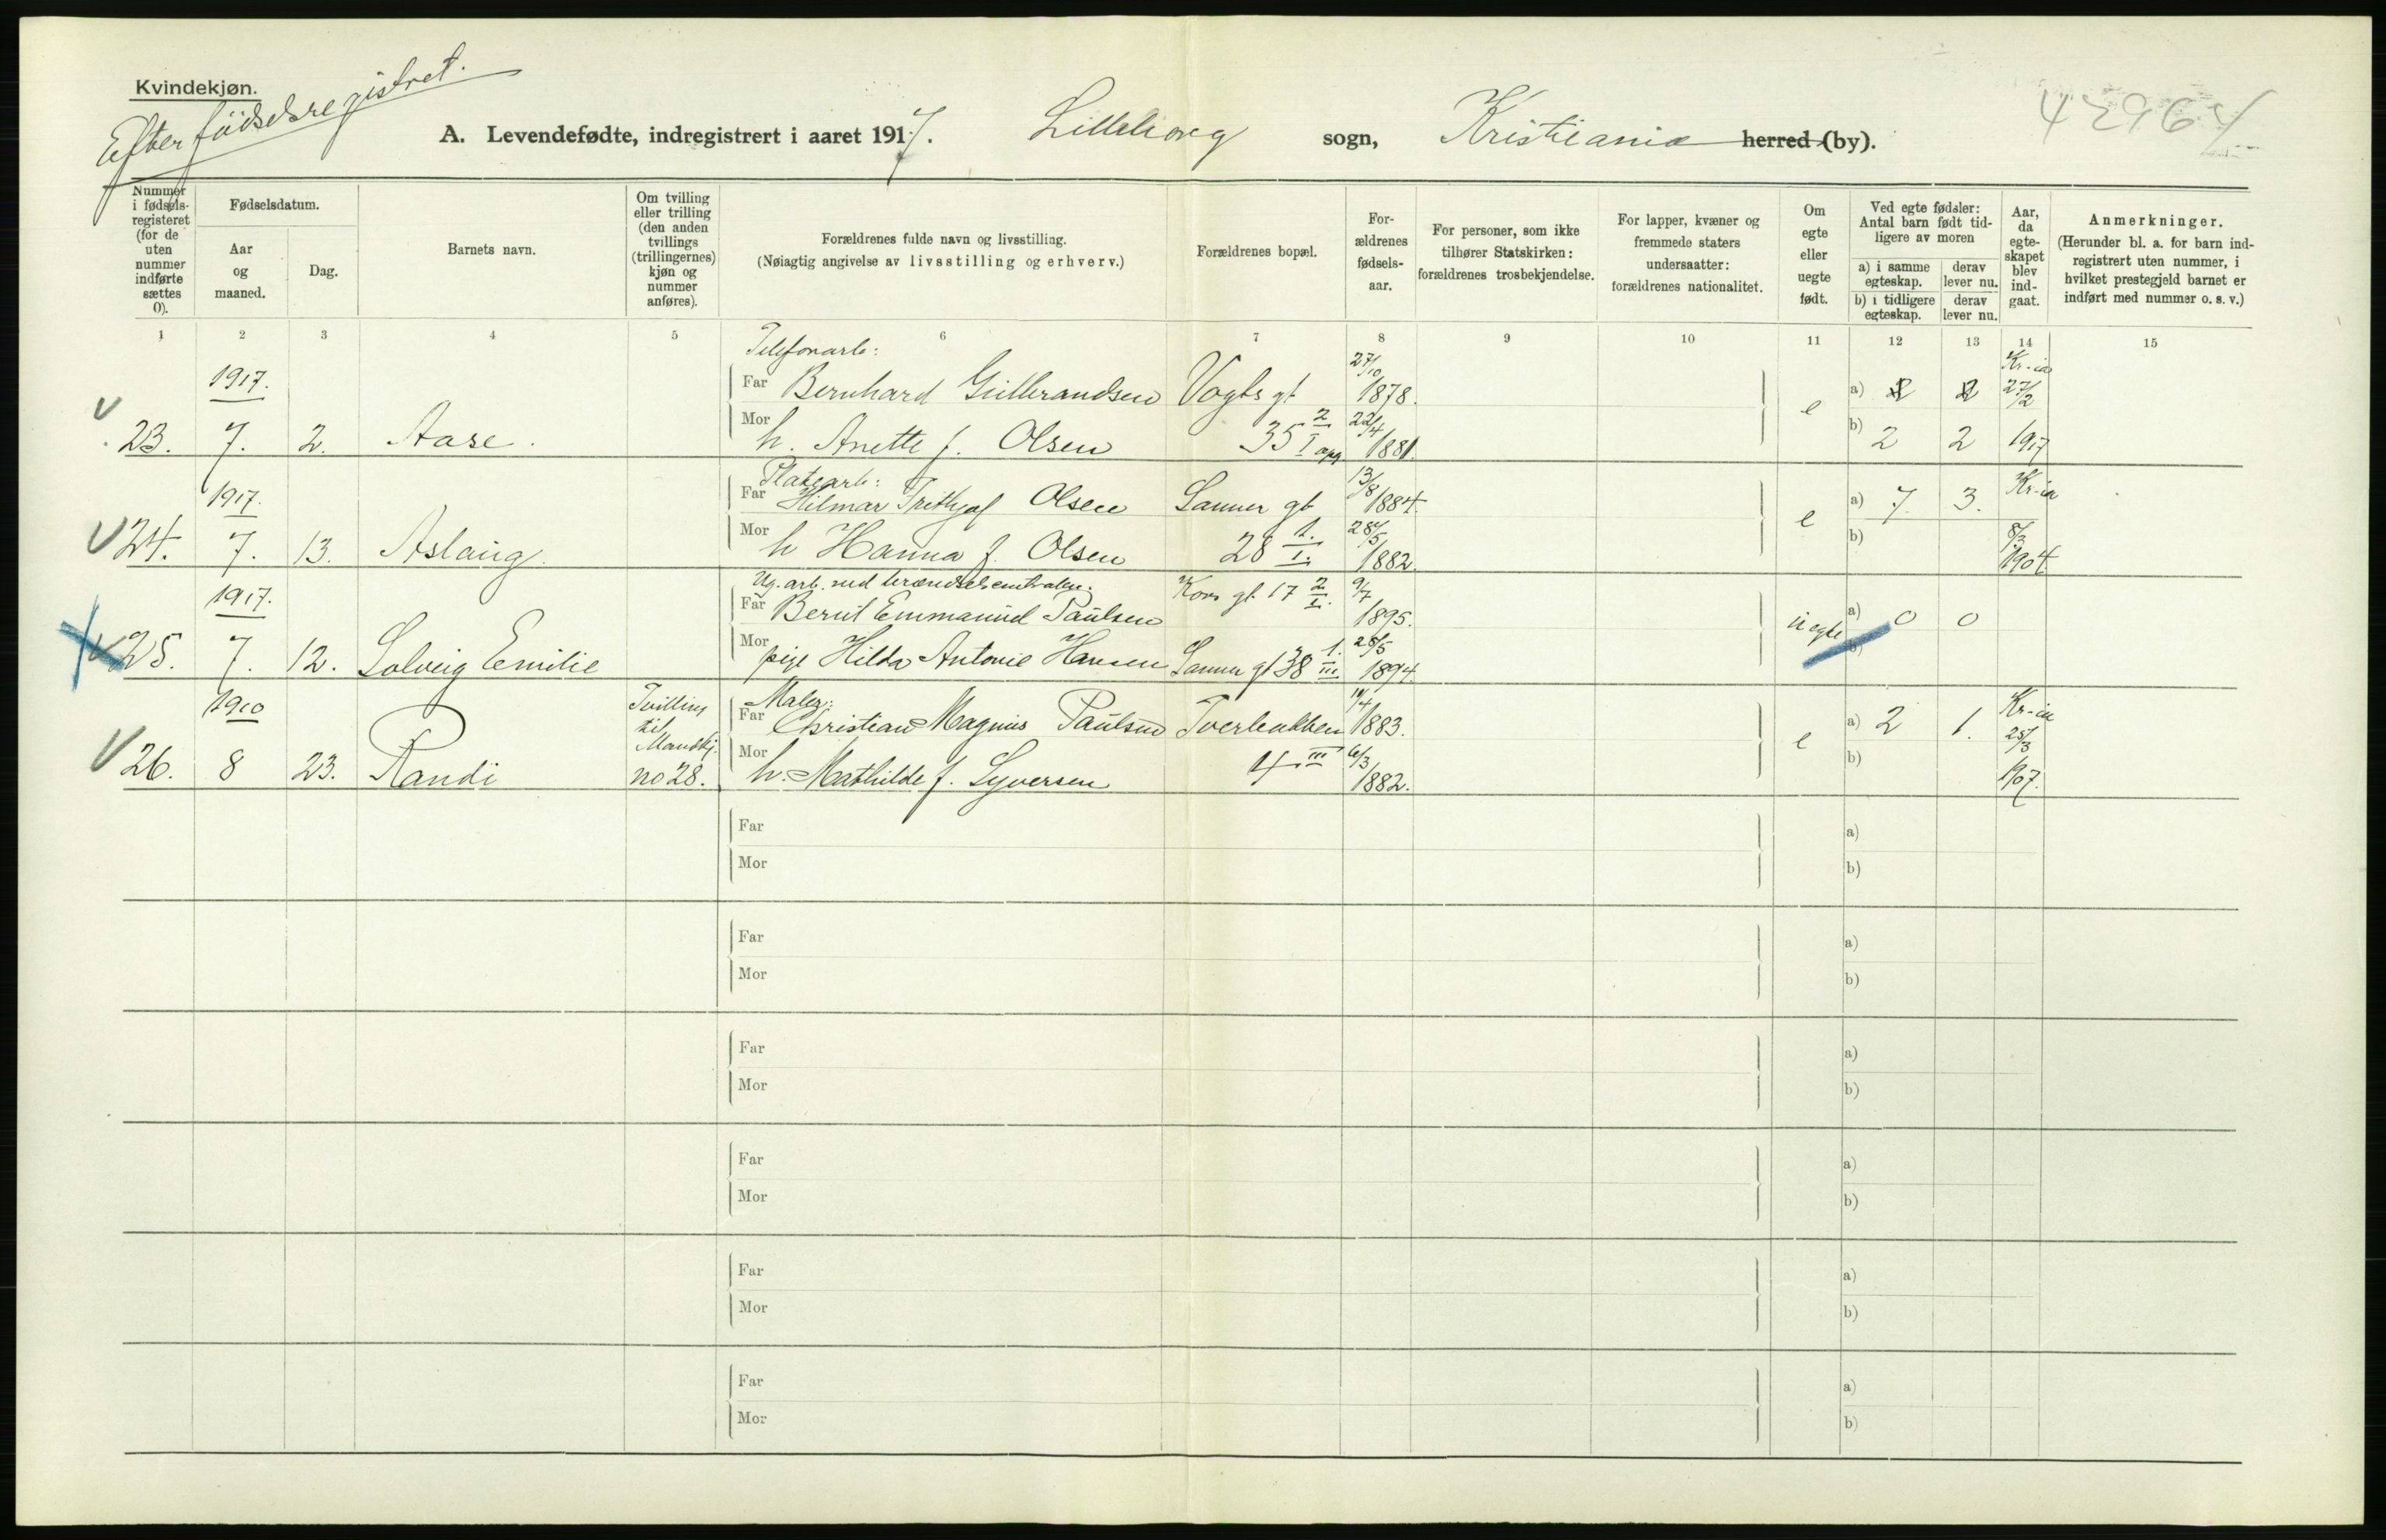 Kvindekjøn.
Efter fødselsregistret.
A. Levendefødte, indregistrert i aaret 1917. Lilleborg sogn, Kristiania herred (by).
Nummer i fødsels-registeret (for de uten nummer indførte sættes 0).
Fødselsdatum.
Aar og maaned.
Dag.
Barnets navn.
Om tvilling eller trilling (den anden tvillings (trillingernes) kjøn og nummer anføres).
Forældrenes fulde navn og livsstilling.
(Nøiagtig angivelse av livsstilling og erhverv.)
Forældrenes bopæl.
For-ældrenes fødsels-aar.
For personer, som ikke tilhører Statskirken: forældrenes trosbekjendelse.
For lapper, kvæner og fremmede staters undersaatter: forældrenes nationalitet.
Om egte eller uegte født.
Ved egte fødsler: Antal barn født tid-ligere av moren
a) i samme egteskap. derav lever nu.
b) i tidligere egteskap. derav lever nu.
Aar, da egte-skapet blev ind-gaat.
Anmerkninger.
(Herunder bl. a. for barn ind-registrert uten nummer, i hvilket prestegjeld barnet er indført med nummer o. s. v.)
1 2 3 4 5 6 7 8 9 10 11 12 13 14 15
Telefonarb:
1917. Far Bernhard Gulbrandsen Vogts gt 27/10 1878. a) Kr-ia 27/2
23. 7. 2. Aase. Mor h. Anette f. Olsen 35 2/I opg 22/4 1881. e b) 2 2 1917
Platearb:
1917. Far Hilmar Frithjof Olsen Sanner gt 13/8 1884. a) 7 3. Kr-ia
24. 7. 13. Aslaug. Mor h Hanna f. Olsen 28 1./I. 28/5 1882. e b) 8/3 1904
Ug. arb. ved brændselcentralen.
1917. Far Bernt Emmanuel Paulsen Kors gt 17 2/I. 9/7 1895. a) 0 0
25. 7. 12. Solveig Emilie Mor pige Hilda Antonie Hansen Sanner gt 38 1./III. 28/5 1894. uegte b)
Maler:
1910 Tvilling til Mandkj. no 28. Far Christian Magnus Paulsen Tverbakken 1883. a) 2 1. Kr-ia 25/3
26. 8 23. Randi Mor h. Mathilde f. Syversen 4 III 6/3 1882. e b) 1907.
Far a)
Mor b)
Far a)
Mor b)
Far a)
Mor b)
Far a)
Mor b)
Far a)
Mor b)
Far a)
Mor b)